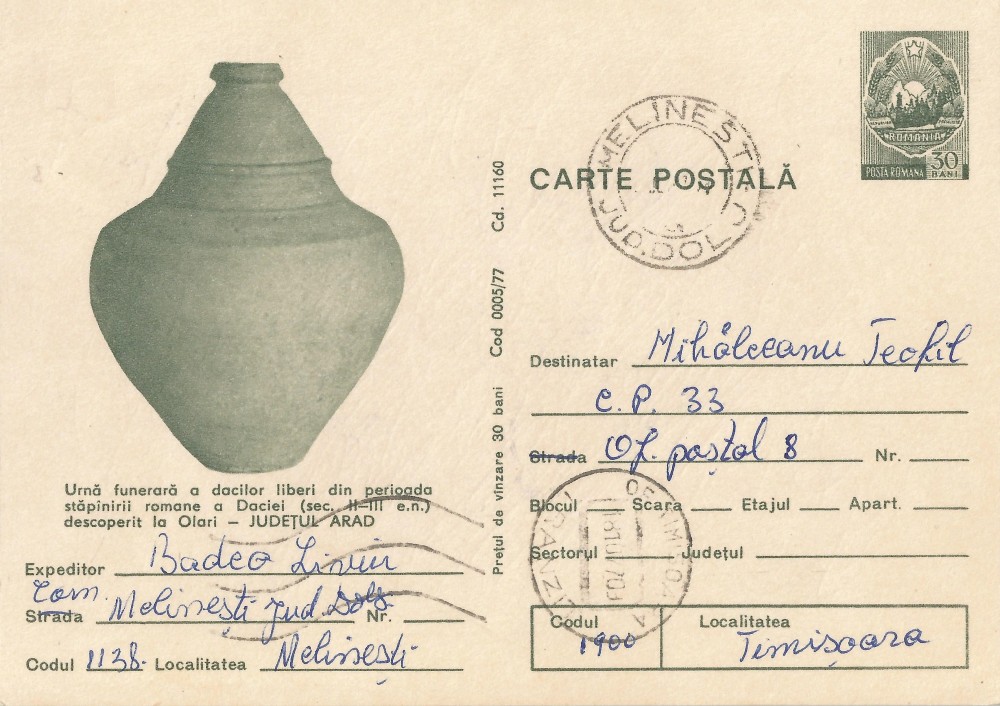 ROMANIA
POSTA ROMANA 30 BANI
CARTE POȘTALĂ
MELINEȘTI
JUD. DOLJ
Cd. 11160
Cod 0005/77
Prețul de vînzare 30 bani
Urnă funerară a dacilor liberi din perioada
stăpînirii romane a Daciei (sec. II–III e.n.)
descoperit la Olari – JUDEȚUL ARAD
Expeditor Badea Liviu
Com.
Strada Melinești Jud Dolj Nr.
Codul 1138. Localitatea Melinești
Destinatar Mihălceanu Teofil
C.P. 33
Strada Of. poștal 8 Nr.
Blocul Scara Etajul Apart.
Sectorul Județul
TIMIȘOARA
TRANZIT
Codul Localitatea
1900 Timișoara